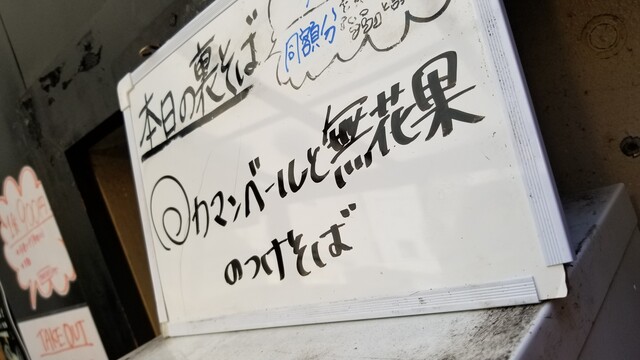 本日の裏そば
同額分
カマンベールと無花果
のつけそば
TAKE OUT